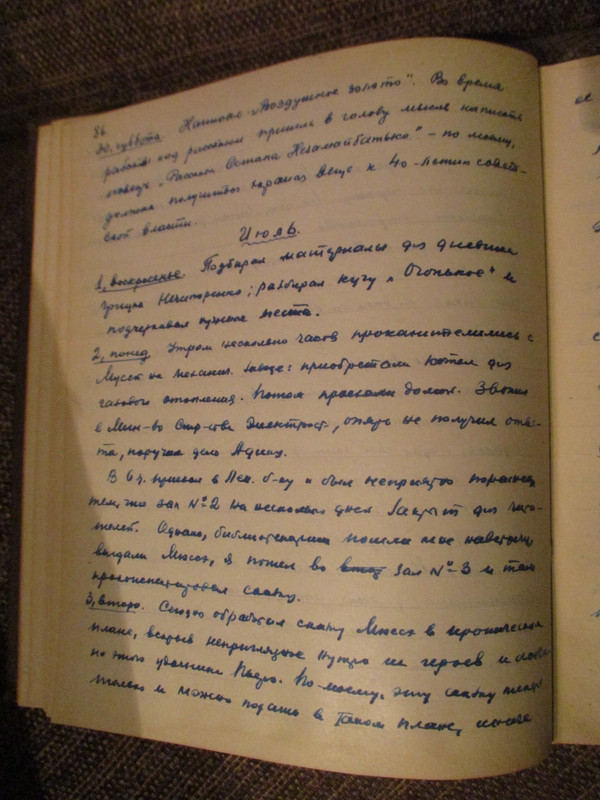 86.
30, суббота. Написано "Воздушное золото". Во время
работы над рассказом пришла в голову мысль написать
повесть "Рассказы Остапа Незамайбатько" – по моему,
должна получиться хорошая вещь к 40-летию совет-
ской власти.
Июль.
1, воскресенье. Подбирал материалы для дневника
Грицка Нечипоренко; разбирал кучу "Огоньков" и
подчеркивал нужные места.
2, понед. Утром несколько часов проканителились с
Мусей на механич. заводе: приобретали котел для
газового отопления. Потом проехали домой. Звонил
в Мин-во Стр-ства Электрост., опять не получил отве-
та, поручил дело
В 6 ч. пришел в Лен. б-ку и был неприятно поражен
тем, что зал №2 на несколько дней закрыт для чита-
телей. Однако, библиотекарши пошли мне навстречу,
выдали Мюссе, я пошел во зал №3 и там
проконспектировал сказку.
3, вторн. Сегодня обработал сказку Мюссе в ироническом
плане, вскрыв неприглядное нутро ее героев и
По-моему, эту сказку теперь
только и можно подать в таком плане, иначе